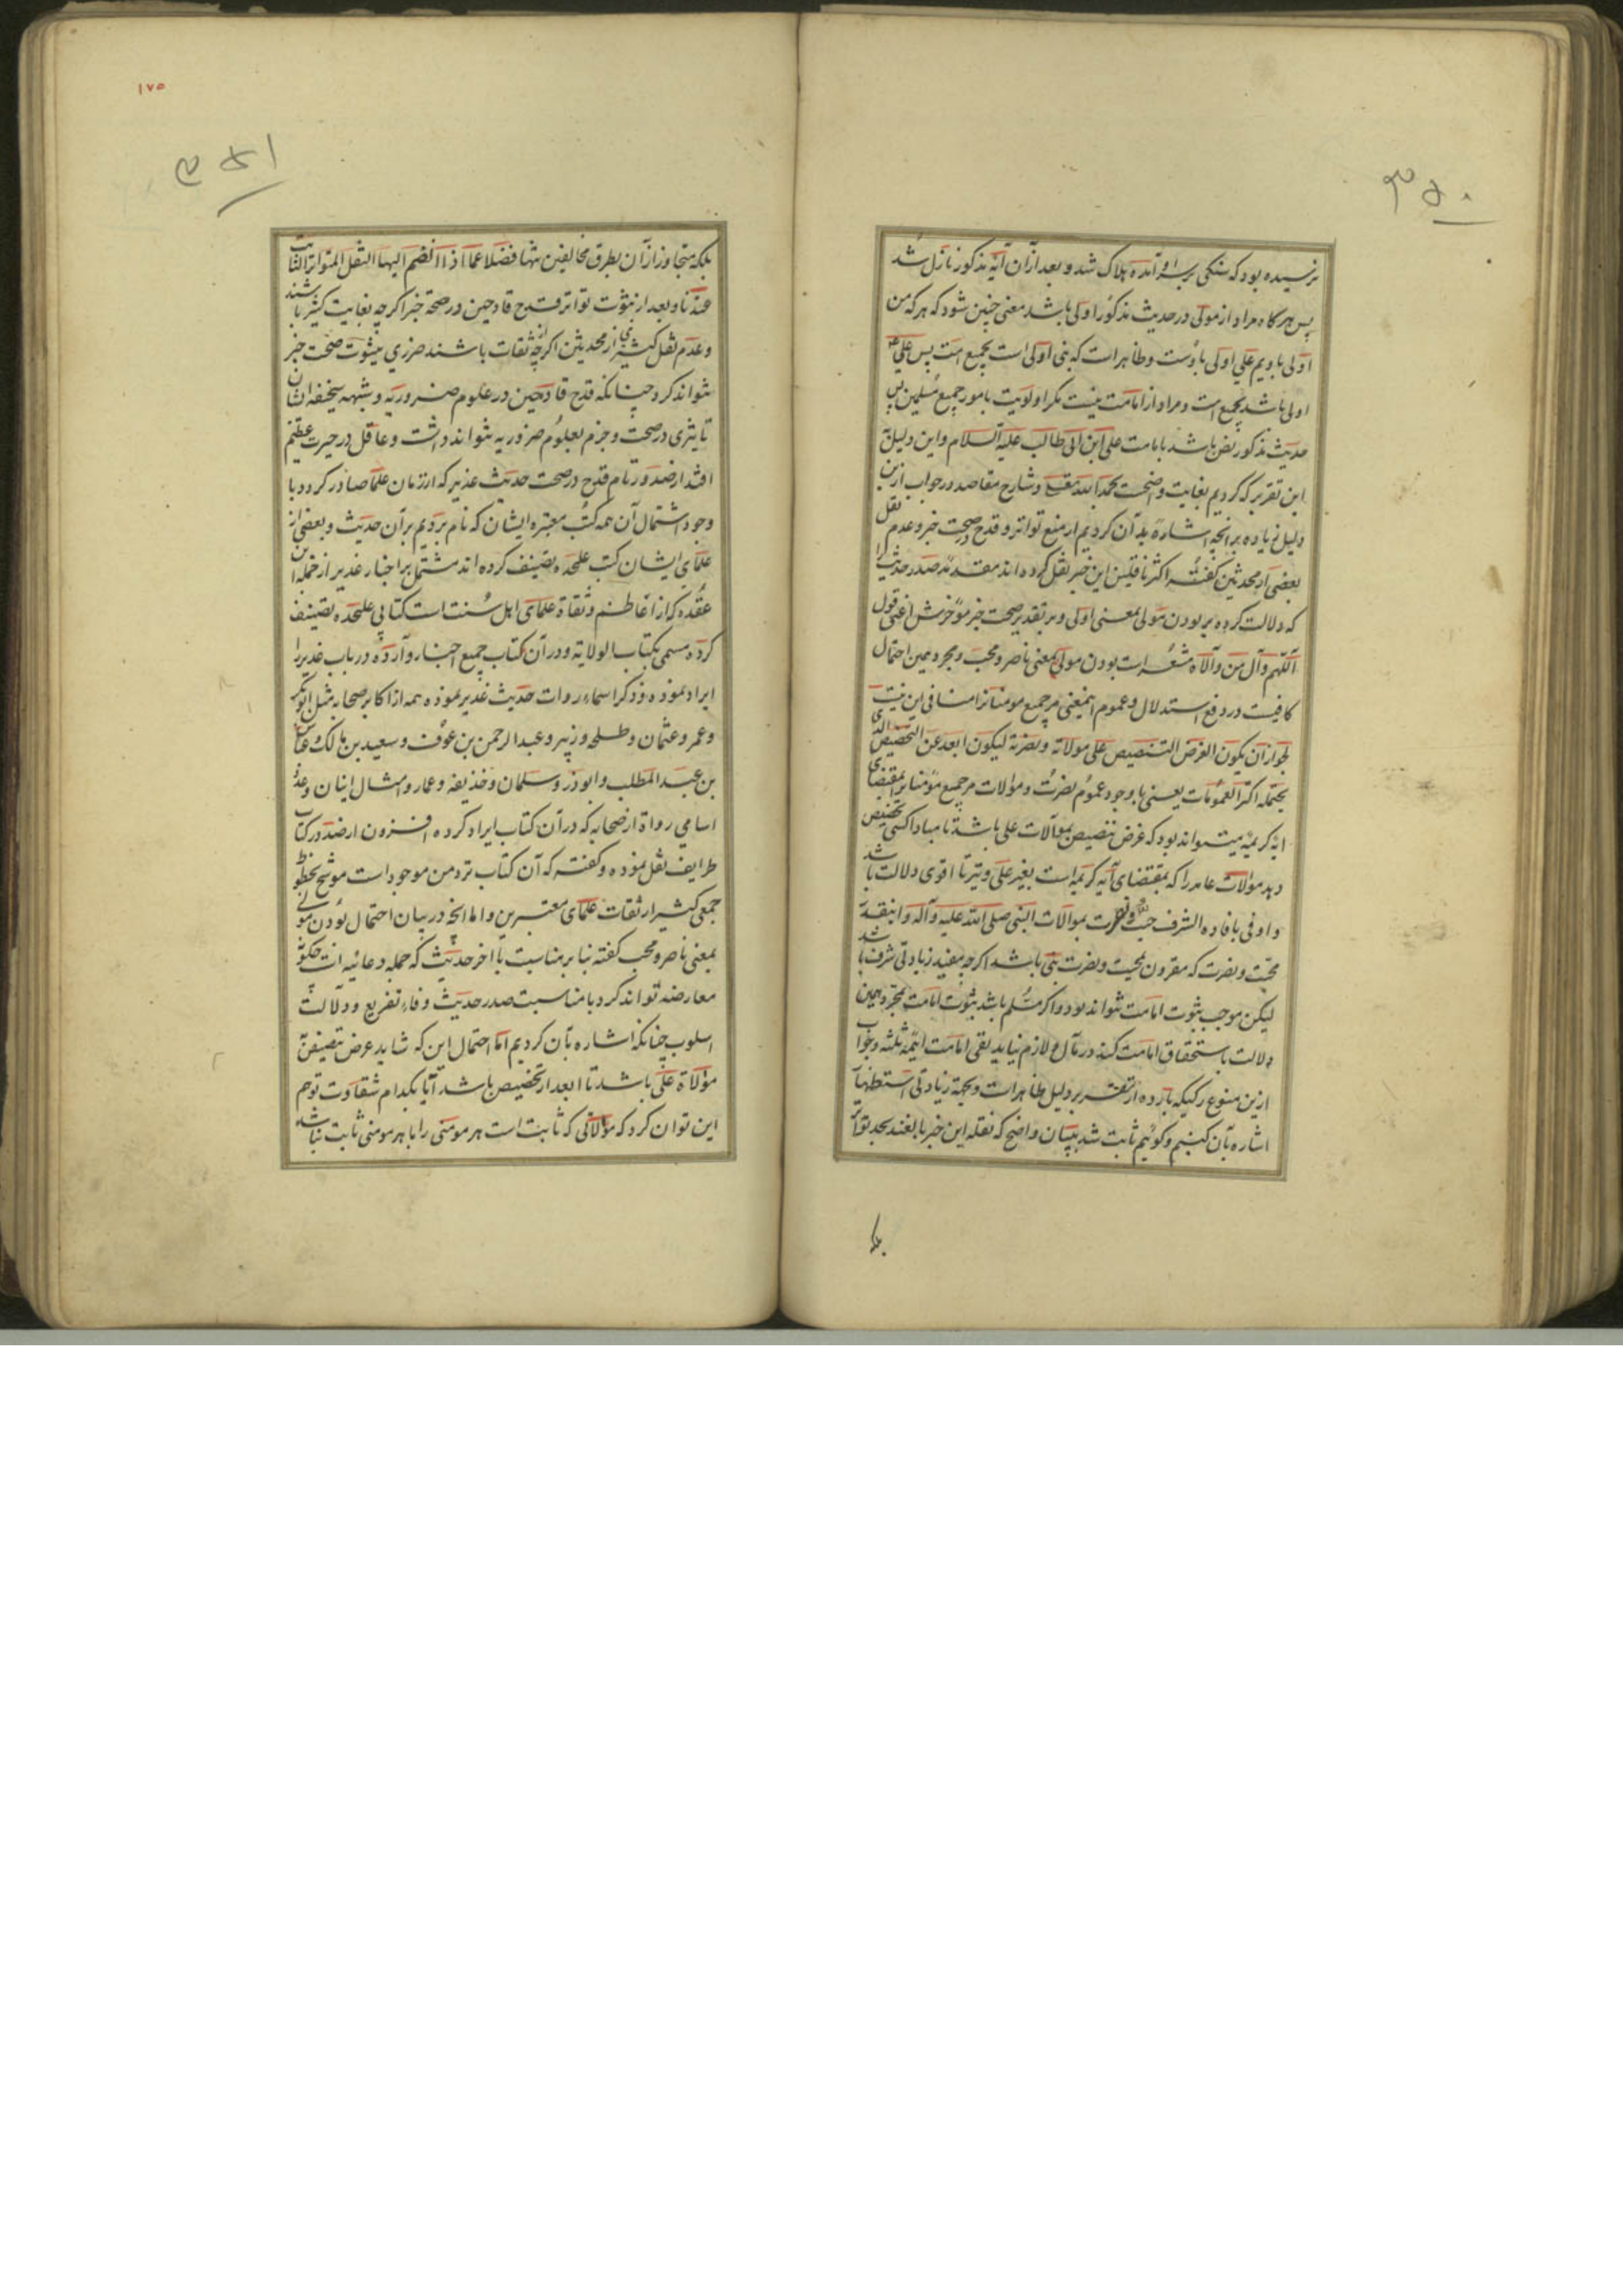 ۳۵۰
نرسیده بود که سنکی بر سر او آمده هلاک شد و بعد از آن آیه مذکور نازل شد
پس هرکاه مراد از مولی در حدیث مذکور اولی باشد معنی چنین شود که هر که من
اولی باویم علی اولی باوست و ظاهر است که نبی اولی است بجمیع امت پس علی ع
اولی باشد بجمیع امت و مراد از امامت نیست مکر اولویت بامور جمیع مسلمین پس
حدیث مذکور نص باشد بامامت علی ابن ابی طالب علیه السلام و این دلیل
باین تقریر که کردیم بغایت واضحست بحمد الله تعالی و شارح مقاصد در جواب ازین
دلیل زیاده بر آنچه اشاره بدان کردیم از منع تواتر و قدح در صحت خبر و عدم نقل
بعضی از محدثین کفته اکثر ناقلین این خبر نقل نکرده اند مقدمه صدر حدیث را
که دلالت کرده بر بودن مولی بمعنی اولی و بر تقدیر صحت خبر مؤخرش اعنی قول
اللهم وال من والاه مشعر است بودن مولی بمعنی ناصر و محب و مجرد همین احتمال
کافیست در دفع استدلال و عموم اینمعنی مر جمیع مومنانرا منافی این نیست
لجواز ان یکون الغرض التنصیص علی موالاته و نصرته لیکون ابعد عن التخصیص الذی
یحتمله اکثر العمومات یعنی با وجود عموم نصرت و موالات مر جمیع مؤمنانرا بمقتضای
آیه کریمه میتواند بود که غرض تنصیص بموالات علی باشد تا مبادا کسی تخصیص
دهد موالات عامه را که بمقتضای آیه کریمه است بغیر علی و نیز تا اقوی دلالت باشد
و اوفی بافاده الشرف حیث قرنت بموالات النبی صلی الله علیه و آله و اینقدر
محبت و نصرت که مقرون بمحبت و نصرت نبی باشد اکرچه مفید زیادتی شرف باشد
لیکن موجب ثبوت امامت نتواند بود و اکر مسلم باشد ثبوت امامت بمجرد همین
دلالت باستحقاق امامت کند در مآل و لازم نیاید نفی امامت ایمه ثلثه و جواب
ازین منوع رکیکه بارده از تقریر دلیل ظاهر است و بجهة زیادتی استظهار
اشاره بآن کنیم و کوئیم ثابت شد ببیان واضح که نقله این خبر بالغند بحد تواتر
بلکه
۱۷۵
۳۵۱
بلکه متجاوز از آن بطرق مخالفین تنها فضلا عما اذا انضم الیها النقل المتواتر الثابت
عندنا و بعد از ثبوت تواتر قدح قادحین در صحة خبر اکرچه بغایت کثیر باشند
و عدم نقل کثیری از محدثین اکرچه از ثقات باشند ضرری بثبوت صحت خبر
نتواند کرد چنانکه قدح قادحین در علوم ضروریه و شبهه سخیفه ایشان
تاثیری در صحت و جزم بعلوم ضروریه نتواند داشت و عاقل در حیرت عظیم
افتد از صدور تام قدح در صحت حدیث غدیر که از زمان علما صادر کردد با
وجود اشتمال آن همه کتب معتبره ایشان که نام بردیم بر آن حدیث و بعضی از
علمای ایشان کتب علیحده تصنیف کرده اند مشتمل بر اخبار غدیر از جمله ابن
عقده که از اعاظم و ثقاة علمای اهل سنت است کتابی علیحده تصنیف
کرده مسمی بکتاب الولایة و در آن کتاب جمیع اخبار وارده در باب غدیر را
ایراد نموده و ذکر اسماء روات حدیث غدیر نموده همه از اکابر صحابه مثل ابوبکر
و عمر و عثمان و طلحه و زبیر و عبد الرحمن بن عوف و سعید بن مالک و عباس
بن عبد المطلب و ابوذر و سلمان و حذیفه و عمار و امثال اینان و عدد
اسامی رواة از صحابه که در آن کتاب ایراد کرده افزون از صد در کتاب
طرایف نقل نموده و کفته که آن کتاب نزد من موجود است موشح بخطوط
جمعی کثیر از ثقات علمای معتبرین و اما آنچه در بیان احتمال بودن مولی
بمعنی ناصر و محب کفته بنا بر مناسبت با آخر حدیث که جمله دعائیه است چکونه
معارضه تواند کرد با مناسبت صدر حدیث و فاء تفریع و دلالت
اسلوب چنانکه اشاره بآن کردیم اما احتمال این که شاید غرض تنصیص
موالاة علی باشد تا ابعد از تخصیص باشد آیا بکدام شقاوت توهم
این توان کرد که موالاتی که ثابت است هر مومنی را با هر مومنی ثابت نباشد